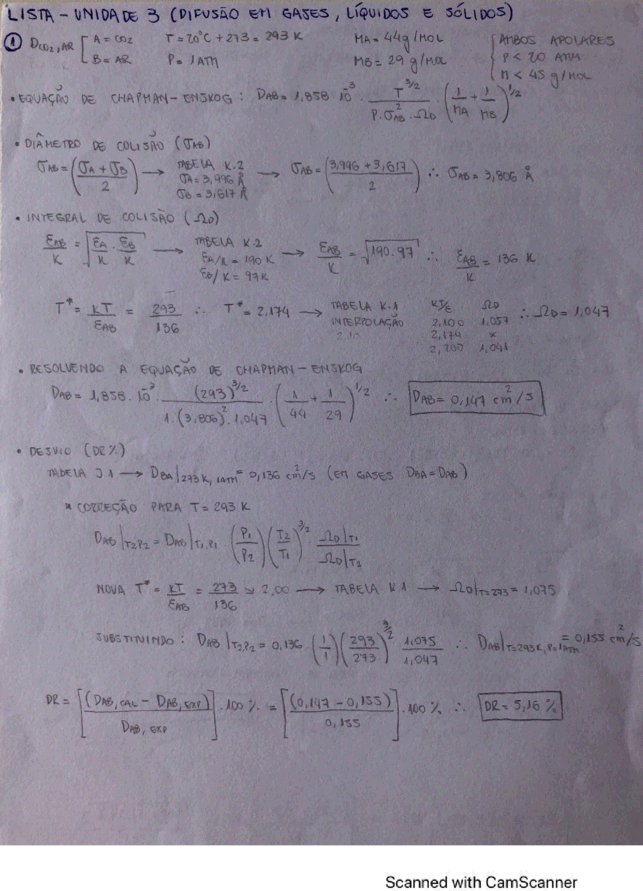 LISTA - UNIDADE 3 (DIFUSÃO EM GASES, LÍQUIDOS E SÓLIDOS)
① DCO2,AR [A = CO2 T = 20°C + 273 = 293 K MA = 44 g/MOL [AMBOS APOLARES
B = AR P = 1 ATM MB = 29 g/MOL P < 20 ATM
M < 45 g/MOL
• EQUAÇÃO DE CHAPMAN-ENSKOG : DAB = 1,858 10^-3 · T^3/2 / (P·σAB^2·ΩD) · (1/MA + 1/MB)^1/2
• DIÂMETRO DE COLISÃO (σAB)
σAB = ((σA + σB)/2) → TABELA K.2 σA = 3,996 Å σB = 3,617 Å → σAB = ((3,996 + 3,617)/2) ∴ σAB = 3,806 Å
• INTEGRAL DE COLISÃO (ΩD)
εAB/K = √(εA/K · εB/K) → TABELA K.2 εA/K = 190 K εB/K = 97 K → εAB/K = √(190·97) ∴ εAB/K = 136 K
T* = KT/εAB = 293/136 ∴ T* = 2,174 → TABELA K.1 INTERPOLAÇÃO KT/ε ΩD ∴ ΩD = 1,047
2,100 1,057
2,174 x
2,200 1,041
• RESOLVENDO A EQUAÇÃO DE CHAPMAN-ENSKOG
DAB = 1,858 · 10^-3 · (293)^3/2 / (1·(3,806)^2·1,047) · (1/44 + 1/29)^1/2 ∴ DAB = 0,147 cm^2/S
• DESVIO (DR%)
TABELA J.1 → DBA|273 K, 1ATM = 0,136 cm^2/S (EM GASES DBA = DAB)
* CORREÇÃO PARA T = 293 K
DAB|T2P2 = DAB|T1,P1 · (P1/P2) (T2/T1)^3/2 ΩD|T1 / ΩD|T2
NOVA T* = KT/εAB = 273/136 ≃ 2,00 → TABELA K.1 → ΩD|T=273 = 1,075
SUBSTITUINDO : DAB|T2,P2 = 0,136 · (1/1) (293/273)^3/2 1,075/1,047 ∴ DAB|T=293K, P=1ATM = 0,155 cm^2/S
DR = [(DAB,CAL - DAB,EXP)/DAB,EXP] · 100 % = [(0,147 - 0,155)/0,155] · 100 % ∴ DR = 5,16 %
Scanned with CamScanner